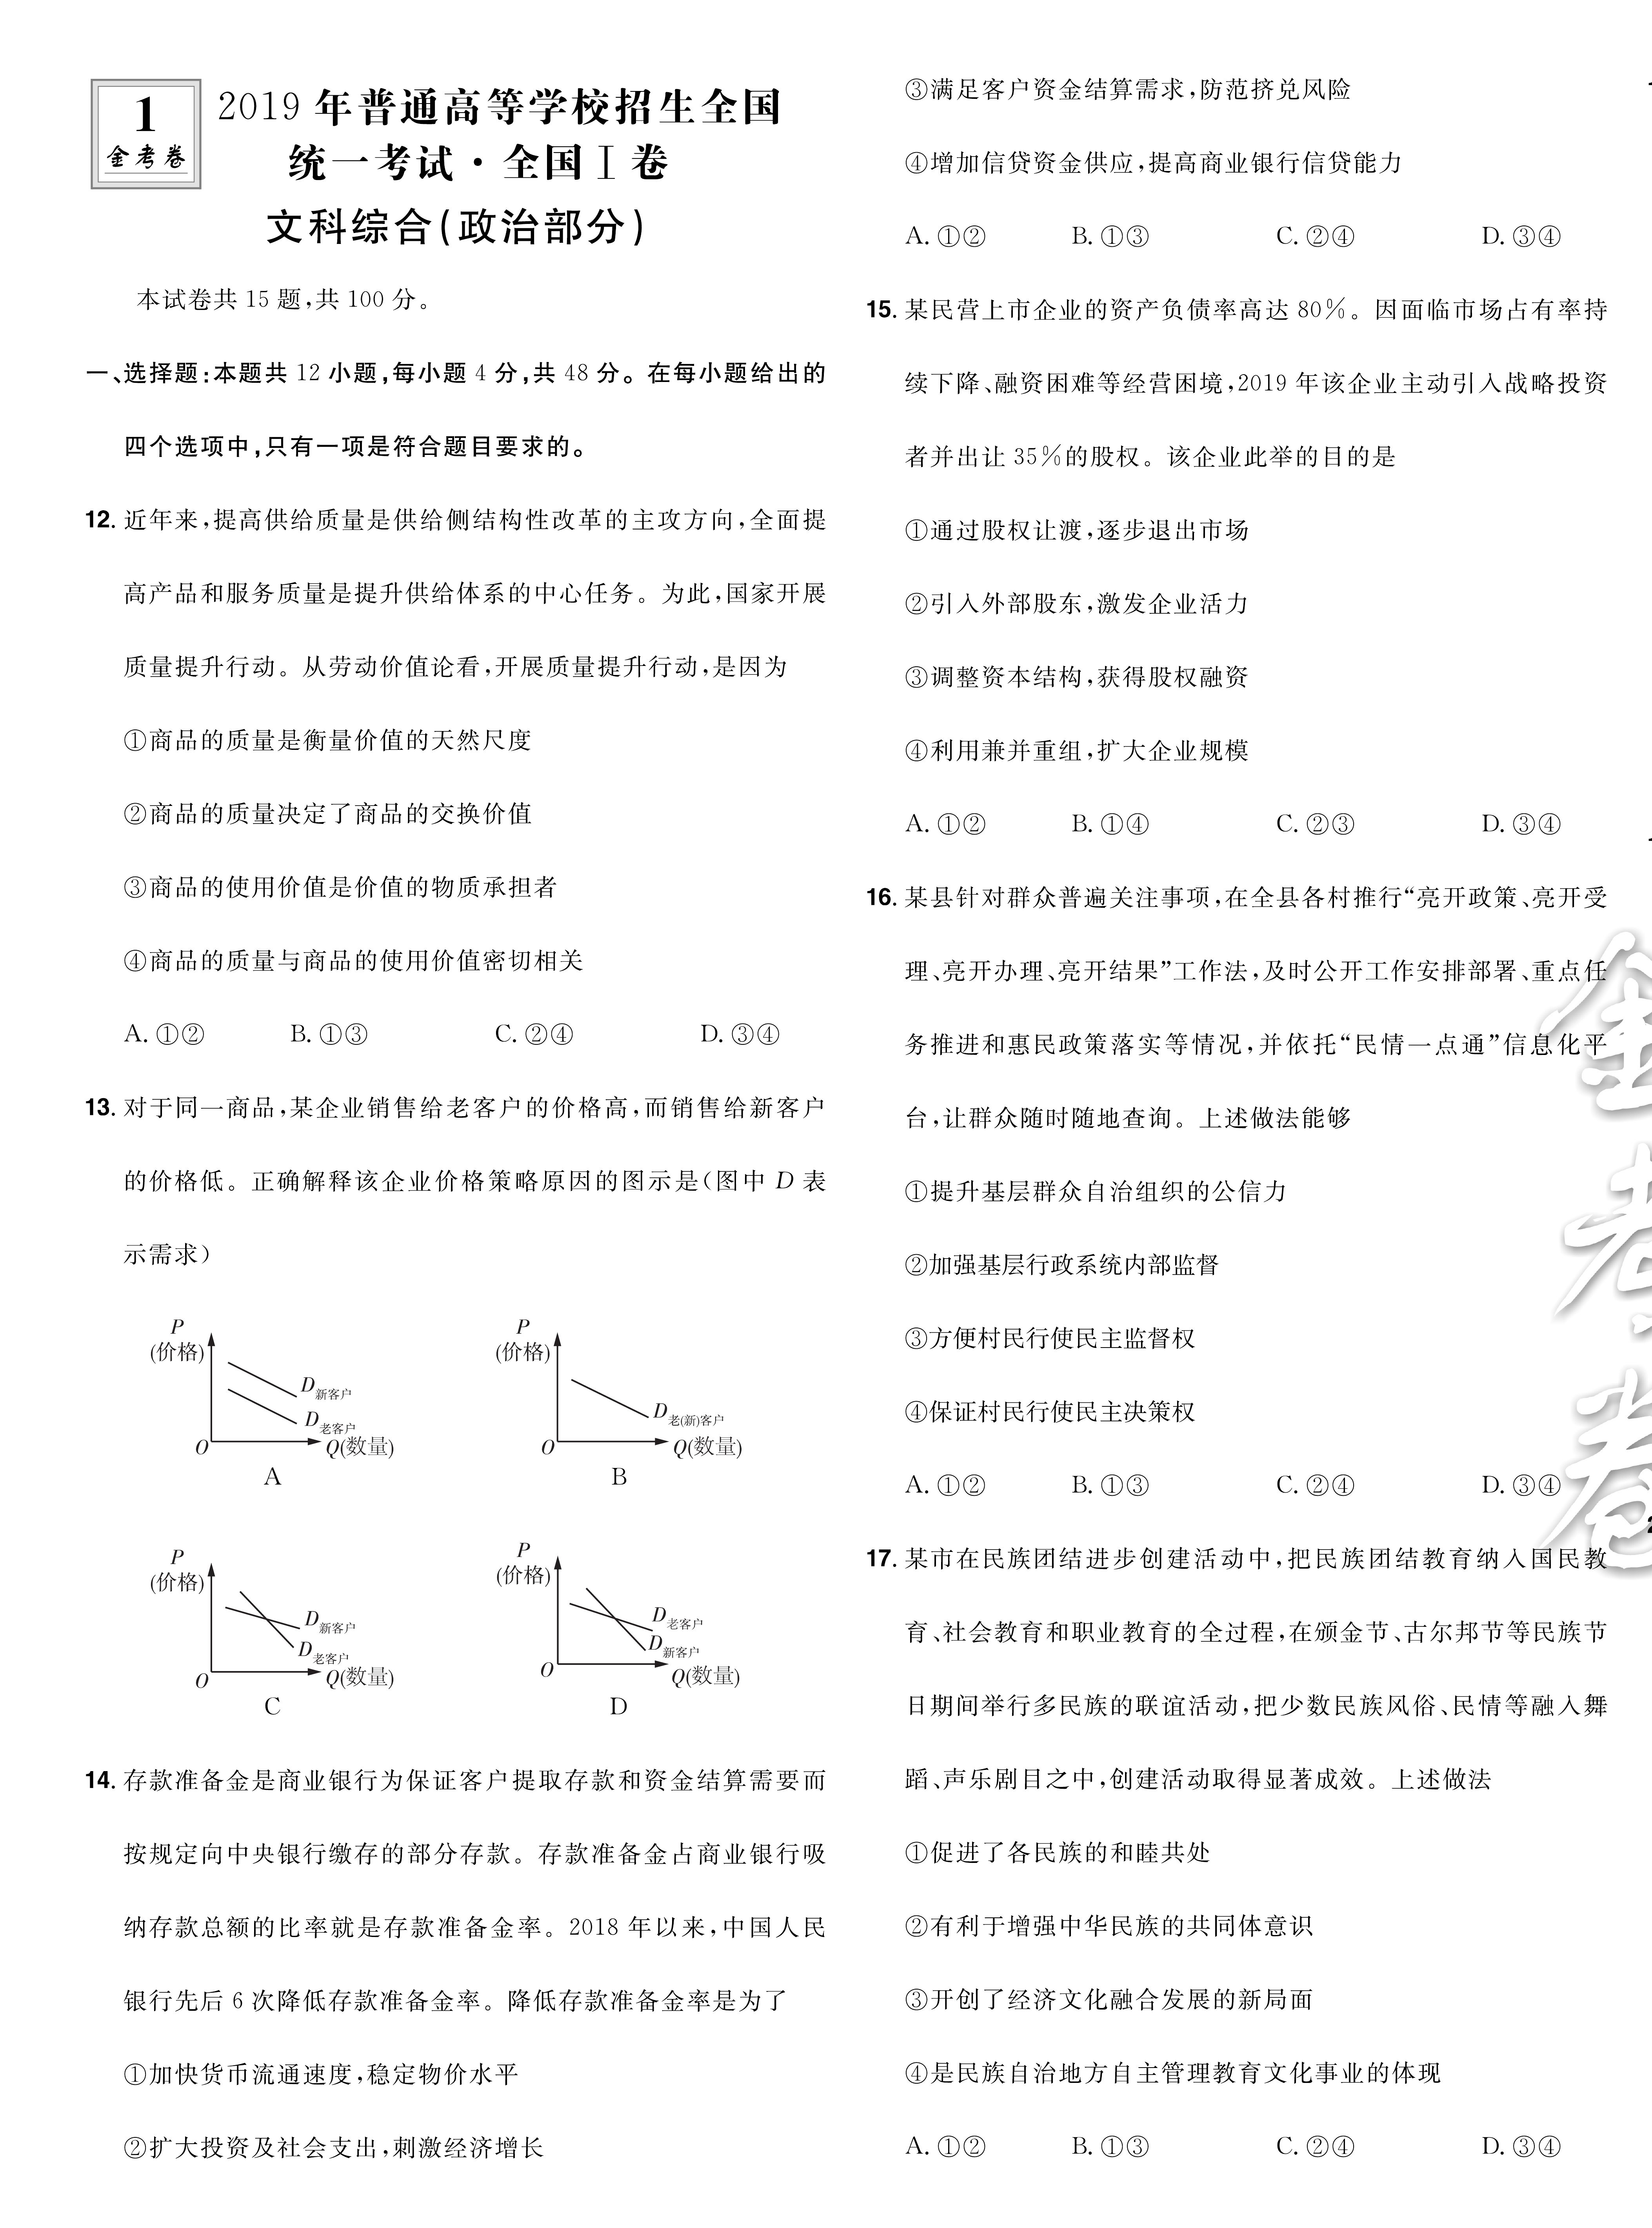 1
金考卷
2019 年普通高等学校招生全国
统一考试·全国Ⅰ卷
文科综合(政治部分)
本试卷共 15 题,共 100 分。
一、选择题:本题共 12 小题,每小题 4 分,共 48 分。在每小题给出的
四个选项中,只有一项是符合题目要求的。
12. 近年来,提高供给质量是供给侧结构性改革的主攻方向,全面提
高产品和服务质量是提升供给体系的中心任务。为此,国家开展
质量提升行动。从劳动价值论看,开展质量提升行动,是因为
①商品的质量是衡量价值的天然尺度
②商品的质量决定了商品的交换价值
③商品的使用价值是价值的物质承担者
④商品的质量与商品的使用价值密切相关
A. ①② B. ①③ C. ②④ D. ③④
13. 对于同一商品,某企业销售给老客户的价格高,而销售给新客户
的价格低。正确解释该企业价格策略原因的图示是(图中 D 表
示需求)
P
(价格)
D新客户
D老客户
O
Q(数量)
A
P
(价格)
D老(新)客户
O
Q(数量)
B
P
(价格)
D新客户
D老客户
O
Q(数量)
C
P
(价格)
D老客户
D新客户
O
Q(数量)
D
14. 存款准备金是商业银行为保证客户提取存款和资金结算需要而
按规定向中央银行缴存的部分存款。存款准备金占商业银行吸
纳存款总额的比率就是存款准备金率。2018 年以来,中国人民
银行先后 6 次降低存款准备金率。降低存款准备金率是为了
①加快货币流通速度,稳定物价水平
②扩大投资及社会支出,刺激经济增长
③满足客户资金结算需求,防范挤兑风险
④增加信贷资金供应,提高商业银行信贷能力
A. ①② B. ①③ C. ②④ D. ③④
15. 某民营上市企业的资产负债率高达 80%。因面临市场占有率持
续下降、融资困难等经营困境,2019 年该企业主动引入战略投资
者并出让 35%的股权。该企业此举的目的是
①通过股权让渡,逐步退出市场
②引入外部股东,激发企业活力
③调整资本结构,获得股权融资
④利用兼并重组,扩大企业规模
A. ①② B. ①④ C. ②③ D. ③④
16. 某县针对群众普遍关注事项,在全县各村推行“亮开政策、亮开受
理、亮开办理、亮开结果”工作法,及时公开工作安排部署、重点任
务推进和惠民政策落实等情况,并依托“民情一点通”信息化平
台,让群众随时随地查询。上述做法能够
①提升基层群众自治组织的公信力
②加强基层行政系统内部监督
③方便村民行使民主监督权
④保证村民行使民主决策权
A. ①② B. ①③ C. ②④ D. ③④
17. 某市在民族团结进步创建活动中,把民族团结教育纳入国民教
育、社会教育和职业教育的全过程,在颁金节、古尔邦节等民族节
日期间举行多民族的联谊活动,把少数民族风俗、民情等融入舞
蹈、声乐剧目之中,创建活动取得显著成效。上述做法
①促进了各民族的和睦共处
②有利于增强中华民族的共同体意识
③开创了经济文化融合发展的新局面
④是民族自治地方自主管理教育文化事业的体现
A. ①② B. ①③ C. ②④ D. ③④
金考卷